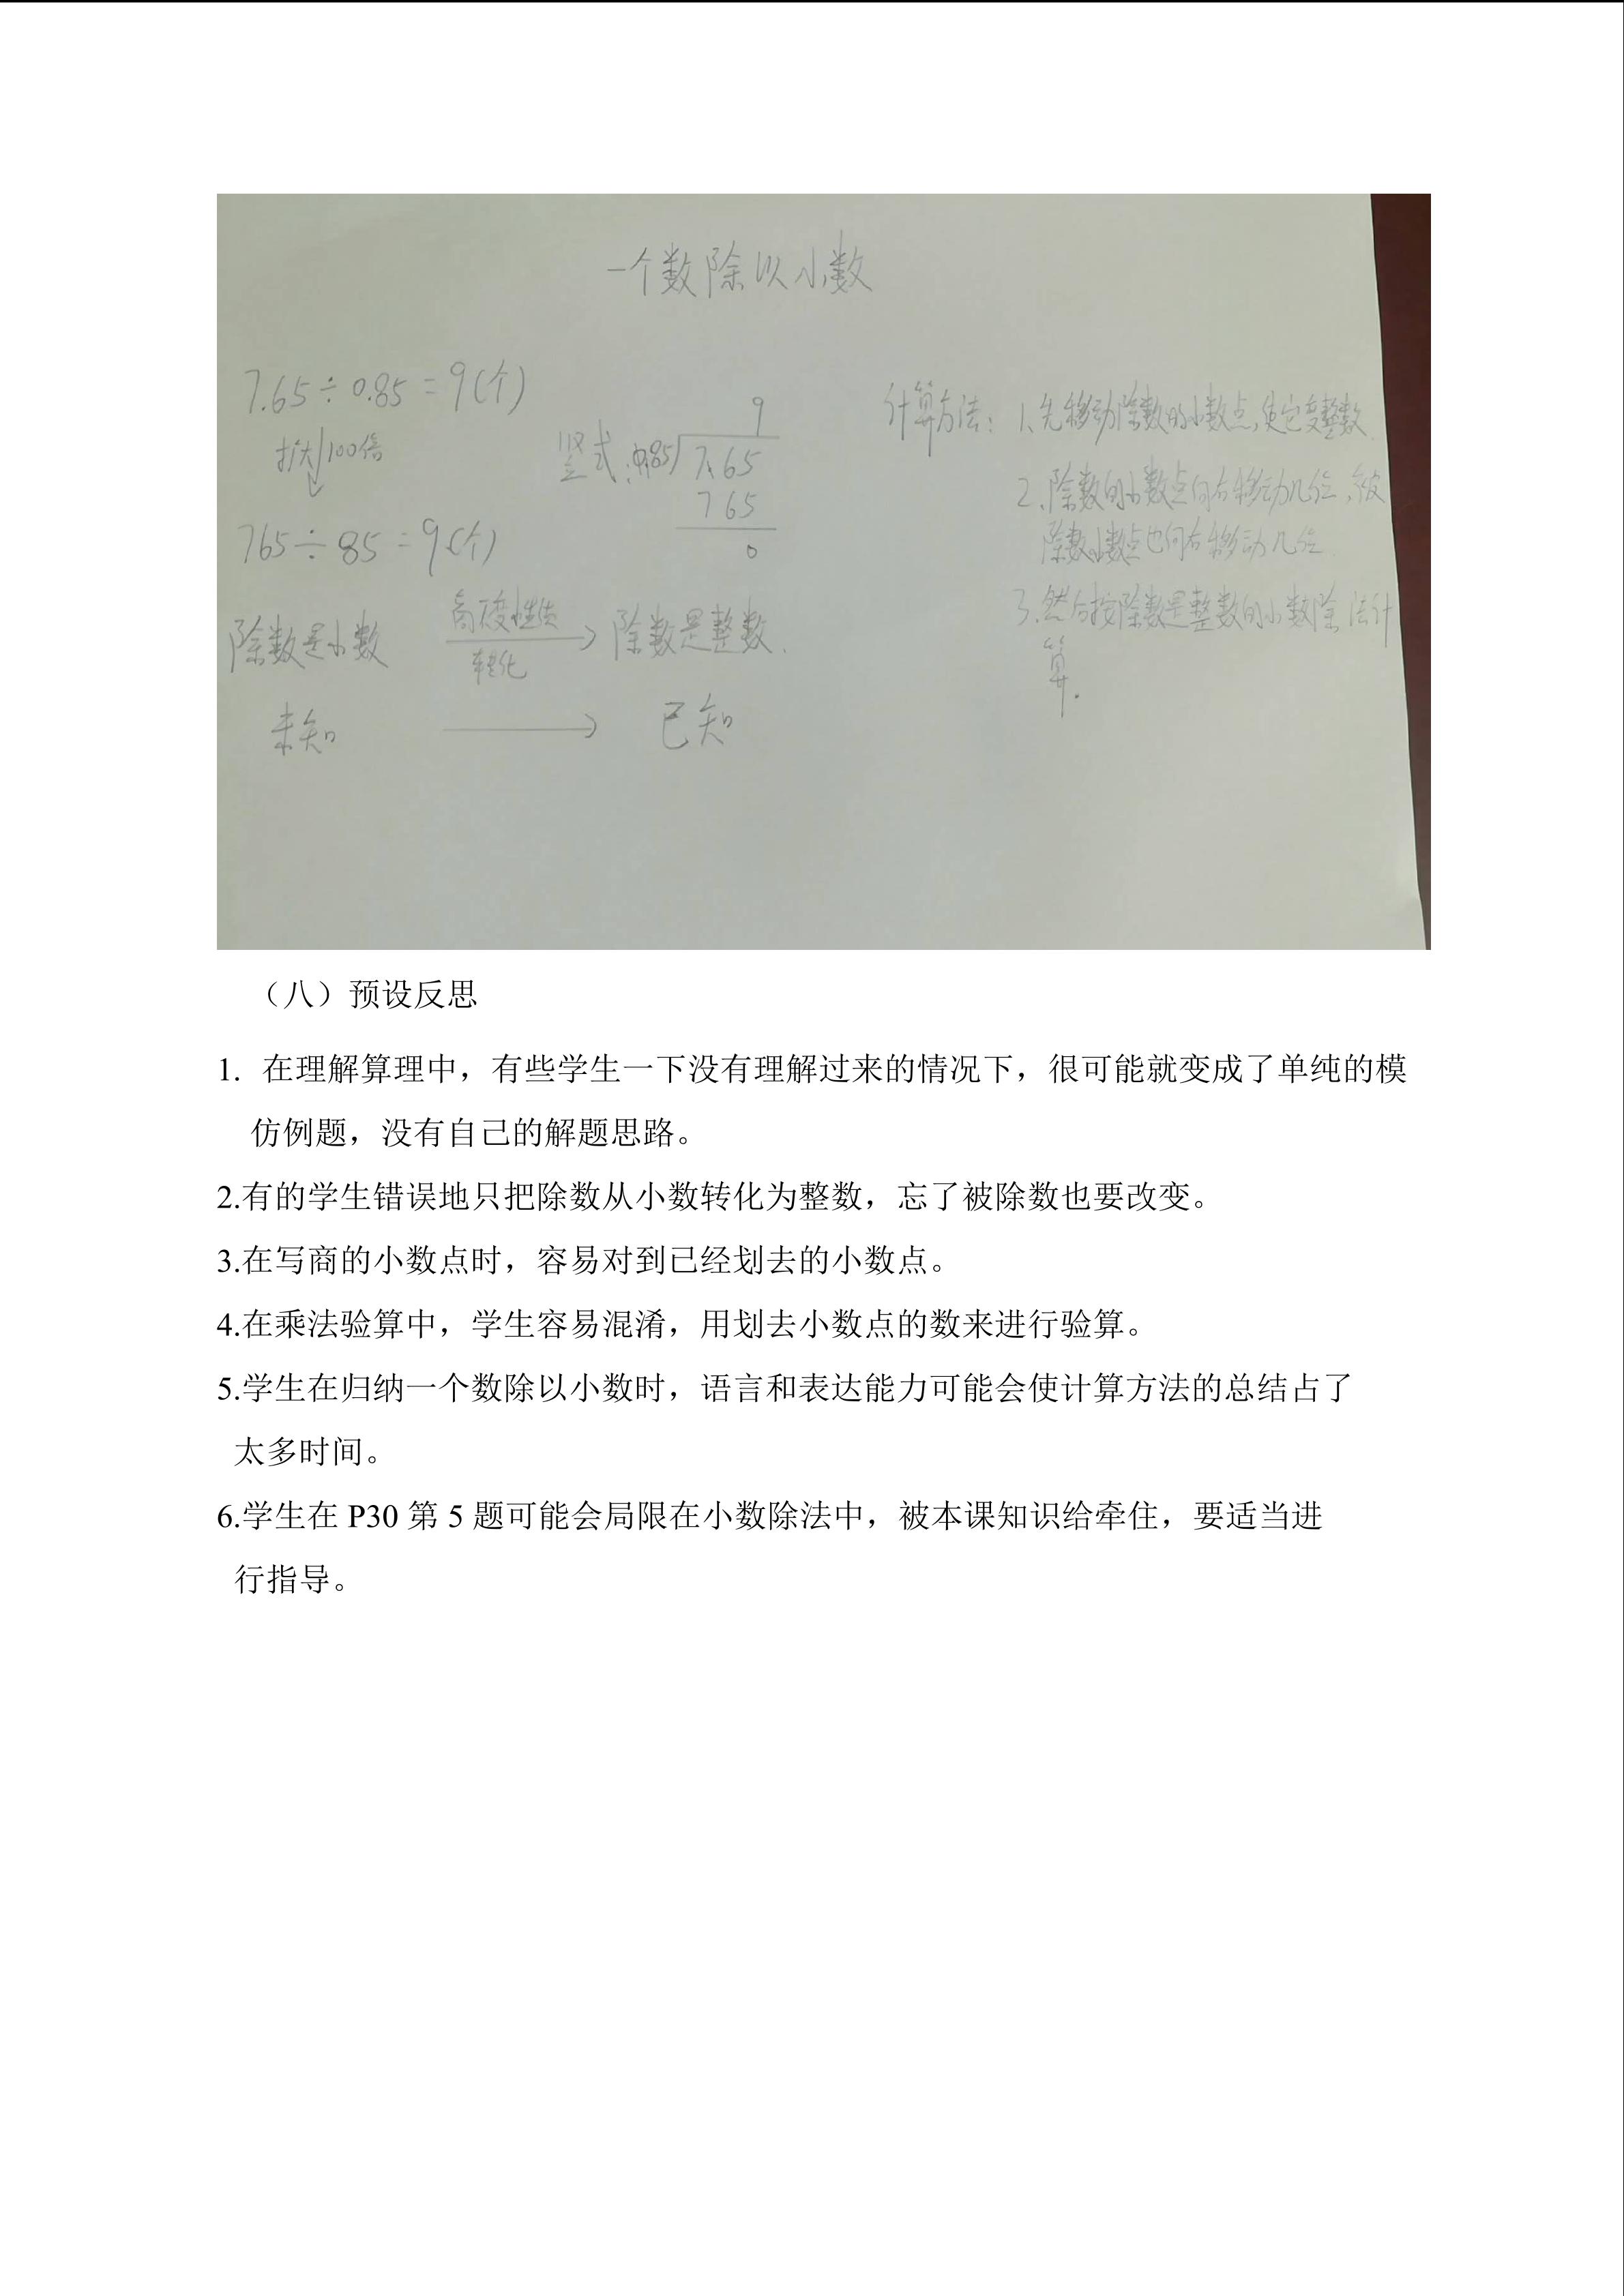 一个数除以小数
7.65÷0.85=9(个)
扩大100倍
765÷85=9(个)
竖式:
9
0.85 7.65
765
0
除数是小数 商不变性质 转化 除数是整数.
未知 已知
计算方法: 1、先移动除数的小数点,使它变整数.
2、除数的小数点向右移动几位,被
除数小数点也向右移动几位.
3.然后按除数是整数的小数除法计
算.
（八）预设反思
1. 在理解算理中，有些学生一下没有理解过来的情况下，很可能就变成了单纯的模
仿例题，没有自己的解题思路。
2.有的学生错误地只把除数从小数转化为整数，忘了被除数也要改变。
3.在写商的小数点时，容易对到已经划去的小数点。
4.在乘法验算中，学生容易混淆，用划去小数点的数来进行验算。
5.学生在归纳一个数除以小数时，语言和表达能力可能会使计算方法的总结占了
太多时间。
6.学生在 P30 第 5 题可能会局限在小数除法中，被本课知识给牵住，要适当进
行指导。